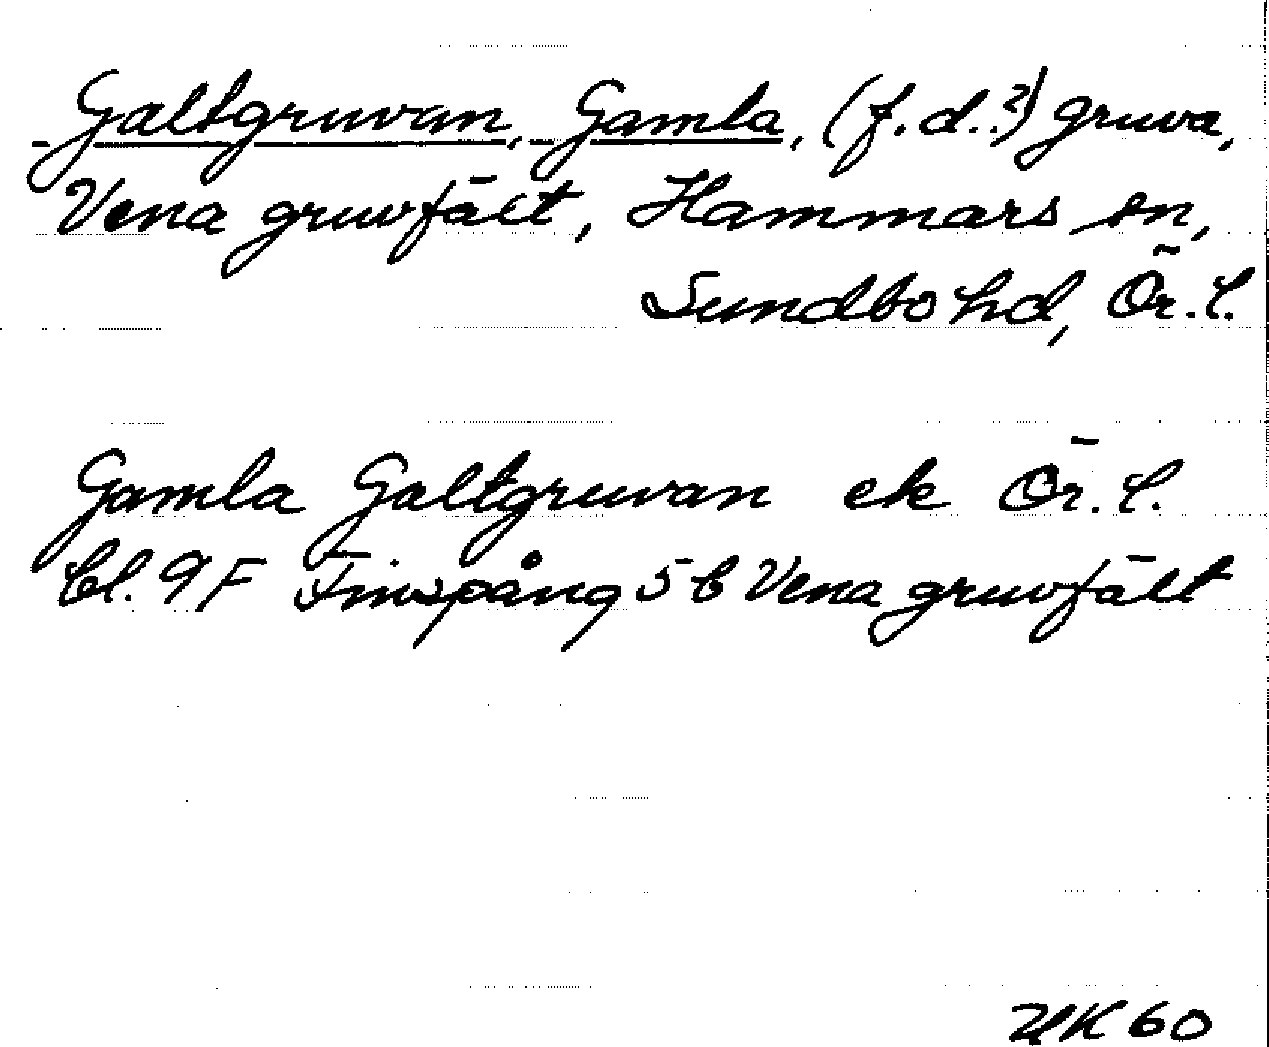 Galtgruvan, Gamla, (f.d.?) gruva,
Vena gruvfält, Hammars sn,
Sundbo hd, Ör. l.
Gamla Galtgruvan ek Ör. l.
bl. 9F Finspång 5 b Vena gruvfält
60